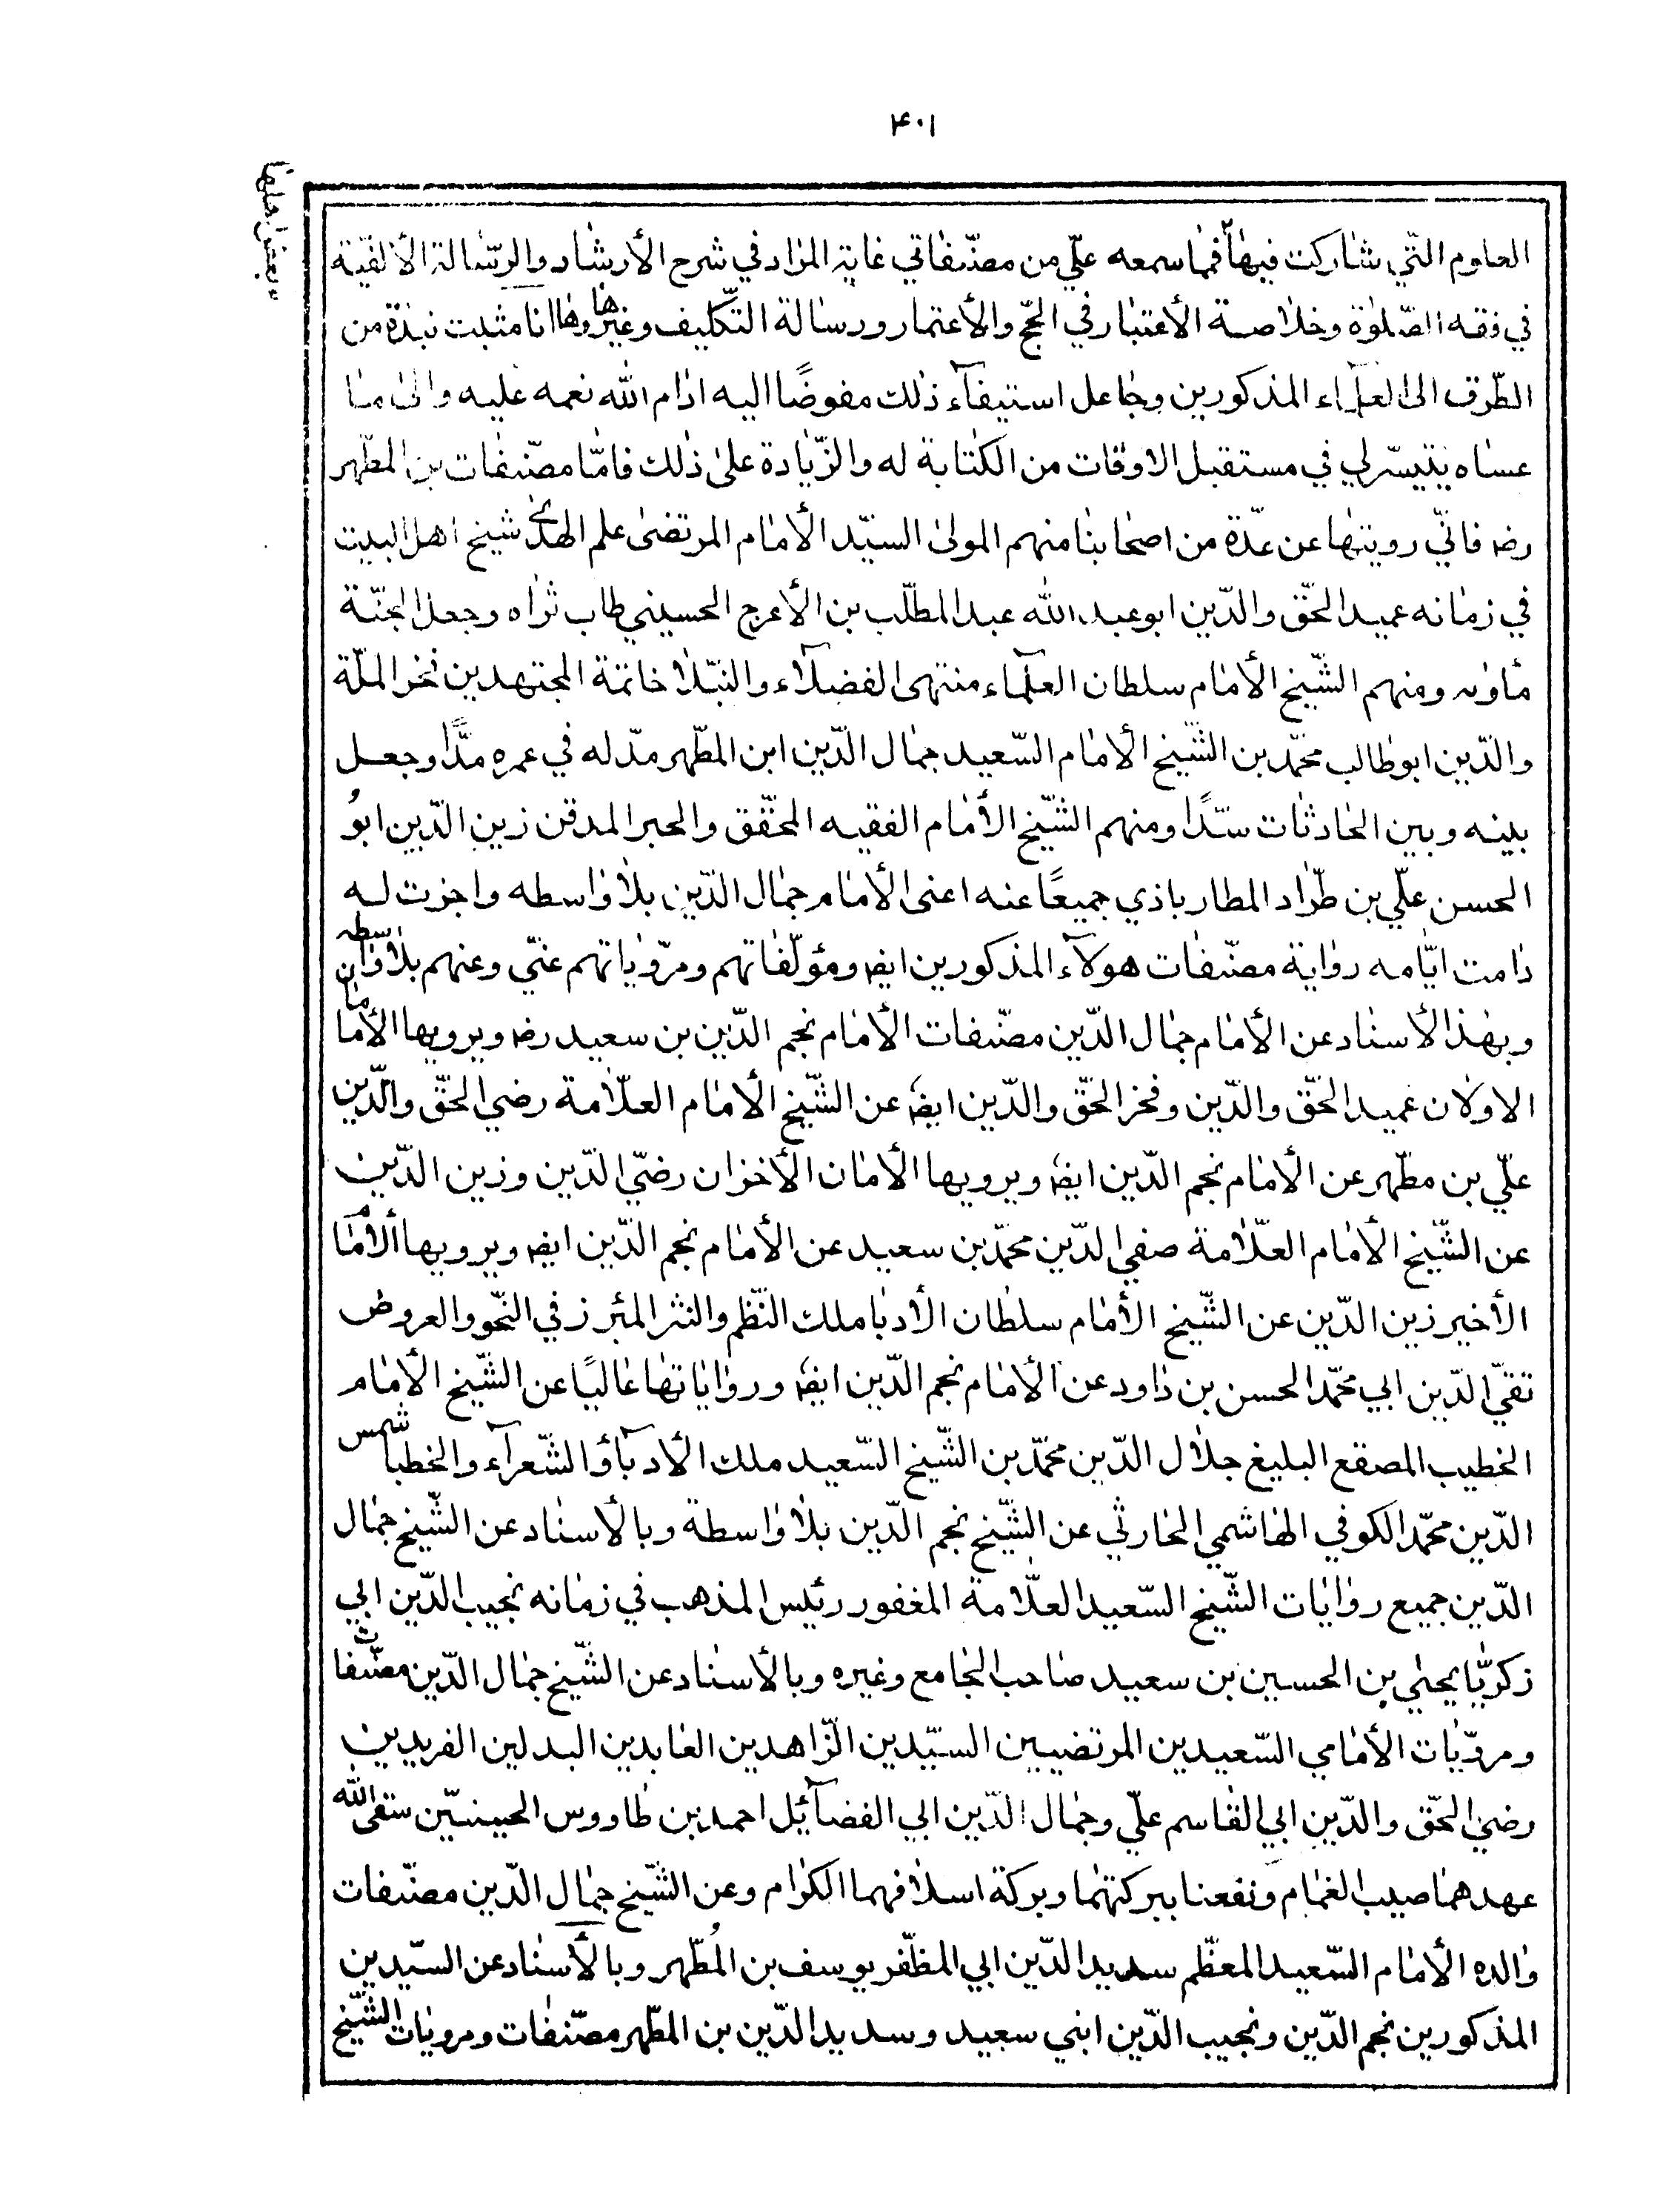 ۴۰۱
العلوم التّي شاركت فيها فمما سمعه علّي من مصنّفاتي غاية المراد في شرح الأرشاد والرّسالة الألفيّة
في فقه الصّلوة وخلاصة الأعتبار في الحجّ والأعتمار ورسالة التّكليف وغيرها وها انا مثبت نبذة من
الطّرق الى العلمآء المذكورين وجاعل استيفآء ذلك مفوضًا اليه ادام الله نعمه عليه والى ما
عساه يتيسّر لي في مستقبل الاوقات من الكتابة له والزّيادة على ذلك فامّا مصنّفات بن المطّهر
رضه فانّي رويتها عن عدّة من اصحابنا منهم المولى السيّد الأمام المرتضى علم الهدى شيخ اهل البيت
في زمانه عميد الحّق والدّين ابو عبد الله عبد المطلّب بن الأعرج الحسيني طاب ثراه وجعل الجنّة
مأويه ومنهم الشّيخ الأمام سلطان العلمآء منتهى الفضلآء والنبّلا خاتمة المجتهدين فخر الملّة
والدّين ابو طالب محمّد بن الشّيخ الأمام السّعيد جمال الدّين ابن المطّهر مدّ له في عمره مدًّا وجعل
بينه وبين الحادثات سدًّا ومنهم الشّيخ الأمام الفقيه المحقّق والحبر المدقق زين الدّين ابو
الحسن علّي بن طرّاد المطارباذي جميعًا عنه اعنى الأمام جمال الدّين بلا واسطه واجزت له
دامت ايّامه رواية مصنّفات هولآء المذكورين ايضه ومؤلّفاتهم ومرّوياتهم عنّي وعنهم بلا واسطه
وبهذا الأسناد عن الأمام جمال الدّين مصنّفات الأمام نجم الدّين بن سعيد رضه ويرويها الأمامان
الاولان عميد الحّق والدّين وفخر الحّق والدّين ايضه عن الشّيخ الأمام العلّامة رضي الحّق والدّين
علّي بن مطّهر عن الأمام نجم الدّين ايضه ويرويها الأمان الأخران رضّي الدّين وزين الدّين
عن الشّيخ الأمام العلّامة صفي الدّين محمّد بن سعيد عن الأمام نجم الدّين ايضه ويرويها الأمام
الأخير زين الدّين عن الشّيخ الأمام سلطان الأدبا ملك النّظم والنثر المبرز في النّحو والعروض
تقيّ الدّين ابي محمّد الحسن بن داود عن الأمام نجم الدّين ايضه ورواياتها غالبًا عن الشّيخ الأمام
الخطيب المصقع البليغ جلال الدّين محمّد بن الشّيخ السّعيد ملك الأدبآؤ الشّعرآء والخطبا شمس
الدّين محمّد الكوفي الهاشمي الحارثي عن الشّيخ نجم الدّين بلا واسطة وبالأسناد عن الشّيخ جمال
الدّين جميع روايات الشّيخ السّعيد العلّامة المغفور رئيس المذهب في زمانه نجيب الدّين ابي
زكريّا يحيى بن الحسين بن سعيد صاحب الجامع وغيره وبالأسناد عن الشّيخ جمال الدّين مصنّفات
ومرويّات الأمامي السّعيدين المرتضيين السيّدين الزّاهدين العابدين البدلين الفريدين
رضيّ الحّق والدّين ابي القاسم علّي وجمال الدّين ابي الفضآئل احمد بن طاووس الحسينيّن سقى الله
عهدهما صيب الغمام ونفعنا ببركتهما وبركة اسلافهما الكرام وعن الشّيخ جمال الدّين مصنّفات
والده الأمام السّعيد المعظّم سديد الدّين ابي المظّفر يوسف بن المُطّهر وبالأسناد عن السيّدين
المذكورين نجم الدّين ونجيب الدّين ابني سعيد وسديد الدّين بن المطّهر مصنّفات ومرويات الشّيخ